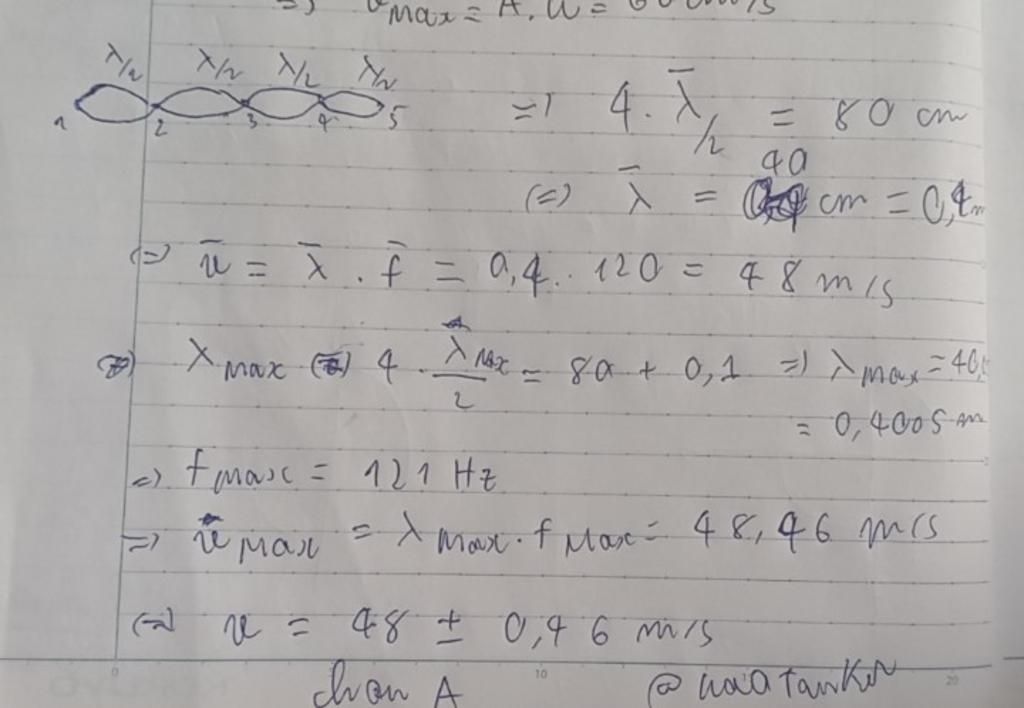 => vMax = A.ω = 60 cm/s
λ/2 λ/2 λ/2 λ/2
1 2 3 4 5 => 4. λ̄/2 = 80 cm
(=) λ̄ = 40 cm = 0,4m
(=) v̄ = λ̄ . f̄ = 0,4. 120 = 48 m/s
λmax (=) 4 . λMax/2 = 80 + 0,1 => λmax = 40,
= 0,4005 m
=> fmax = 121 Hz
=> vMax = λmax . fMax = 48,46 m/s
(=) v = 48 ± 0,46 m/s
0 10 20
chọn A